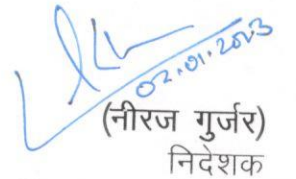 02.01.2023
(नीरज गुर्जर)
निदेशक